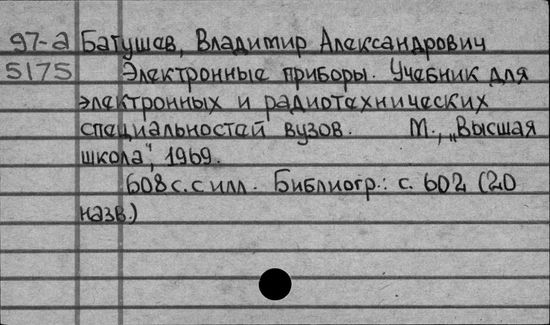 97-а Батушев, Владимир Александрович
5175 Электронные приборы. Учебник для
электронных и радиотехнических
специальностей вузов. М., „Высшая
школа", 1969.
608 с. с илл. Библиогр.: с. 602 (20
назв.)